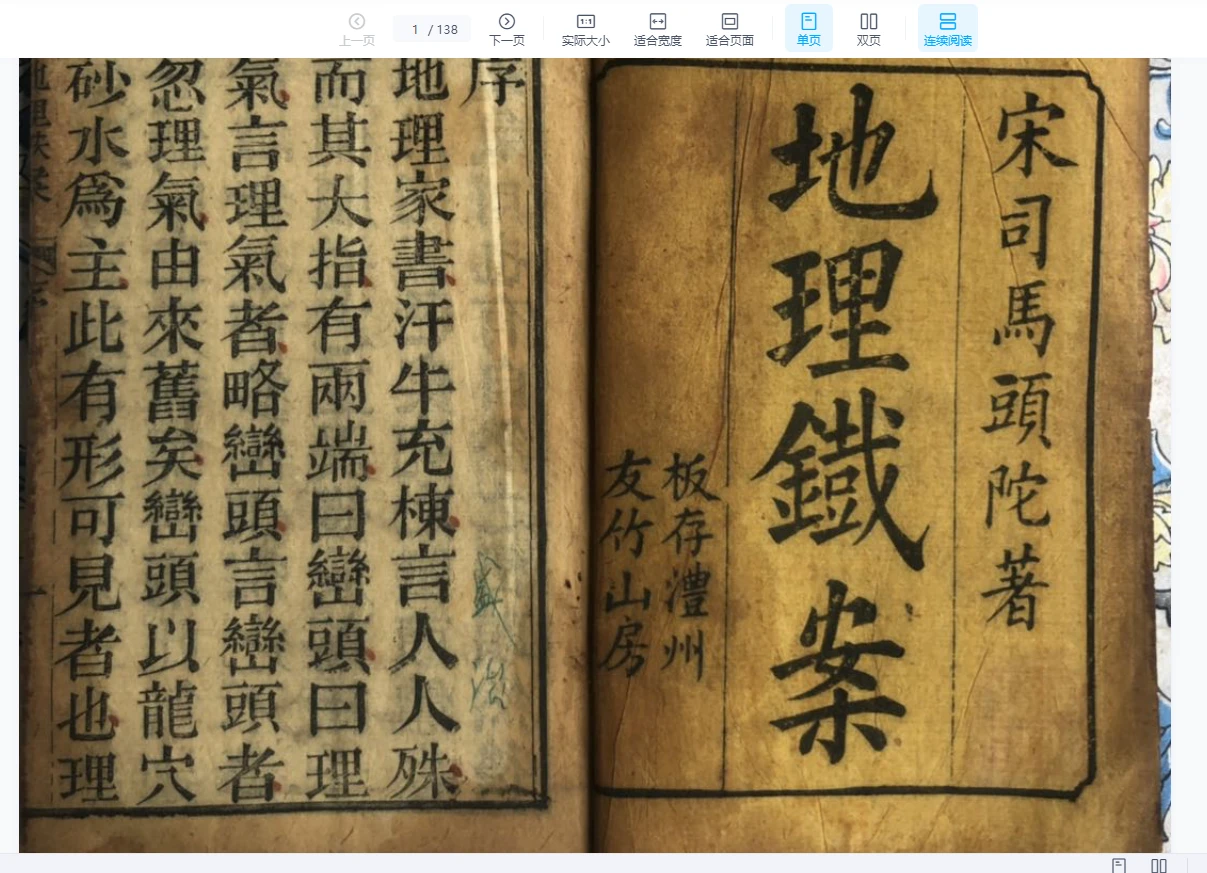 上一页
1 / 138
下一页
1:1
实际大小
适合宽度
适合页面
单页
双页
连续阅读
宋司馬頭陀著
地理鐵案
板存澧州
友竹山房
序
地理家書汗牛充棟言人人殊
而其大指有兩端曰巒頭曰理
氣言理氣者略巒頭言巒頭者
忽理氣由來舊矣巒頭以龍穴
砂水爲主此有形可見者也理